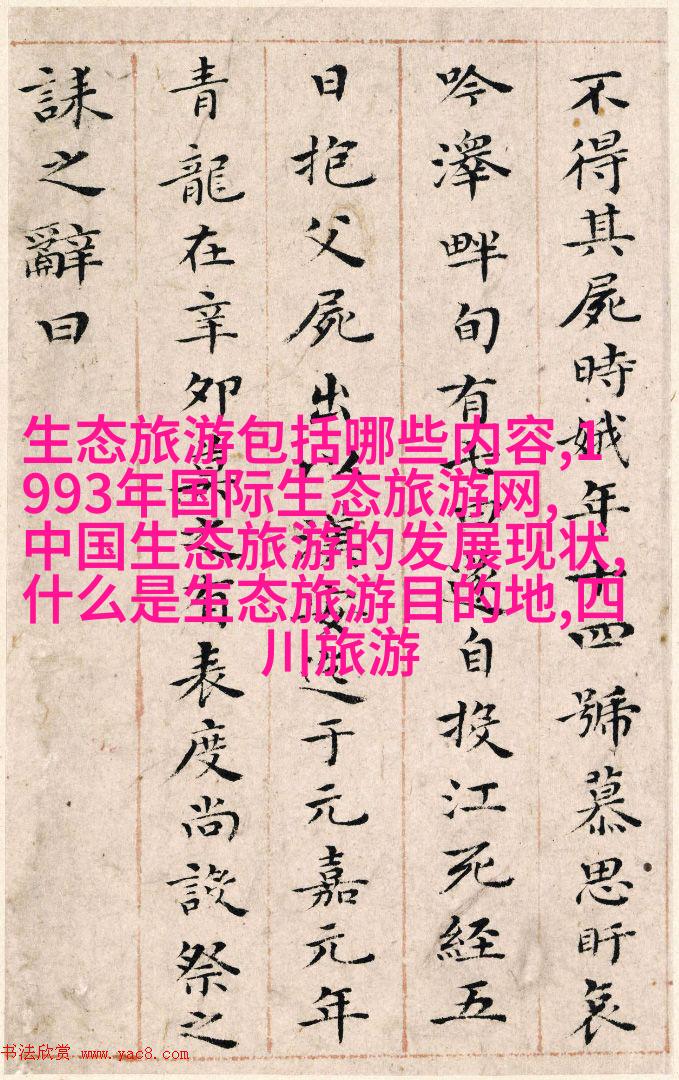 不得其屍時娥年十四號慕思盱哀
吟澤畔旬有七日遂自投江死經五
日抱父屍出以漢安迄于元嘉元年
青龍在辛卯莫之有表度尚設祭之
誄之辭曰
生态旅游包括哪些内容,1
993年国际生态旅游网,
中国生态旅游的发展现状,
什么是生态旅游目的地,四
川旅游
书法欣赏 www.yac8.com